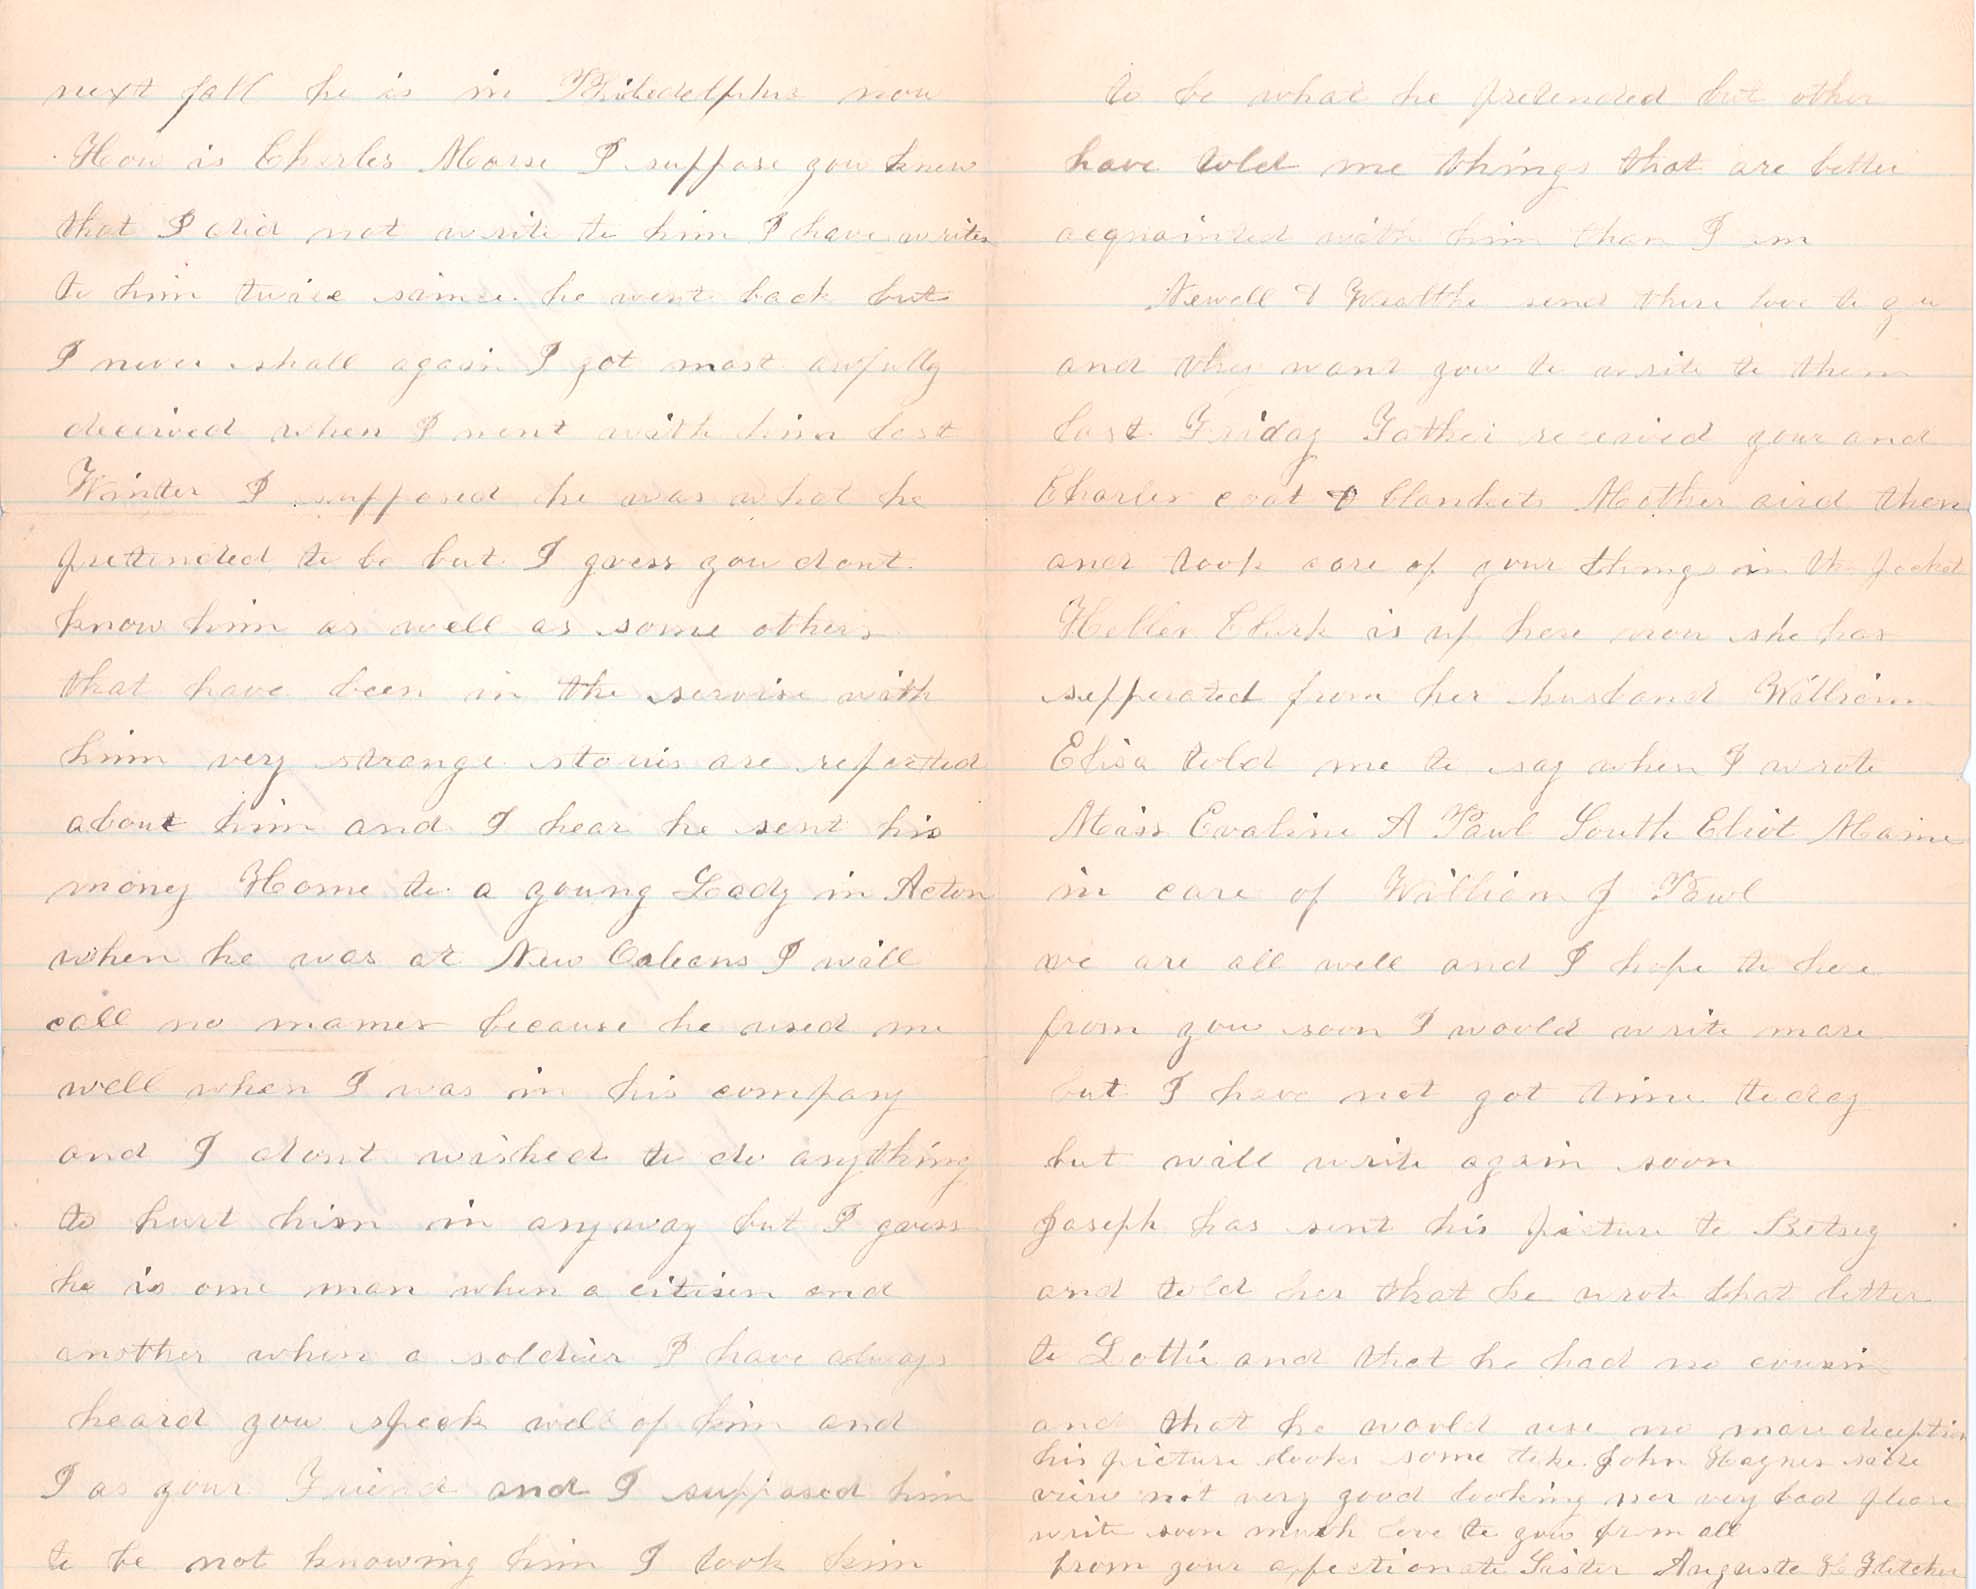 next fall he is in Philedelphia now
How is Charles Morse I suppose you knew
that I did not write to him I have writen
to him twice since he went back but
I never shall again I got most awfully
deceived when I went with him last
Winter I supposed he was what he
prettended to be but I guess you dont
know him as well as some others
that have been in the servise with
him very strange stories are reported
about him and I hear he sent his
money Home to a young Lady in Acton
when he was at New Orleans I will
call no names because he used me
well when I was in his company
and I dont wished to do anything
to hurt him in anyway but I guess
he is one man when a citisen and
another when a soldier I have always
heard you speek well of him and
I as your Friend and I supposed him
to be not knowing him I took him
to be what he pretended but other
have told me things that are better
acquainted with him than I am
Newell & send there love to you
and they want you to write to them
last Friday Father received your and
Charles coat & blankets Mother aird them
and took care of your things in the pocket
Hellen Clark is up here now she has
sepperated from her husband William
Elisa told me to say when I wrote
Miss Evaline A Paul South Eliot Maine
in care of William J Paul
we are all well and I hope to here
from you soon I would write more
but I have not got time today
but will write again soon
Joseph has sent his picture to Betsey
and told her that he wrote that letter
to Lottie and that he had no cousin
and that he would use no more deception
his picture looks some like John side
view not very good looking nor very bad please
write soon much love to you from all
from your affectionate Sister Auguste Fletcher